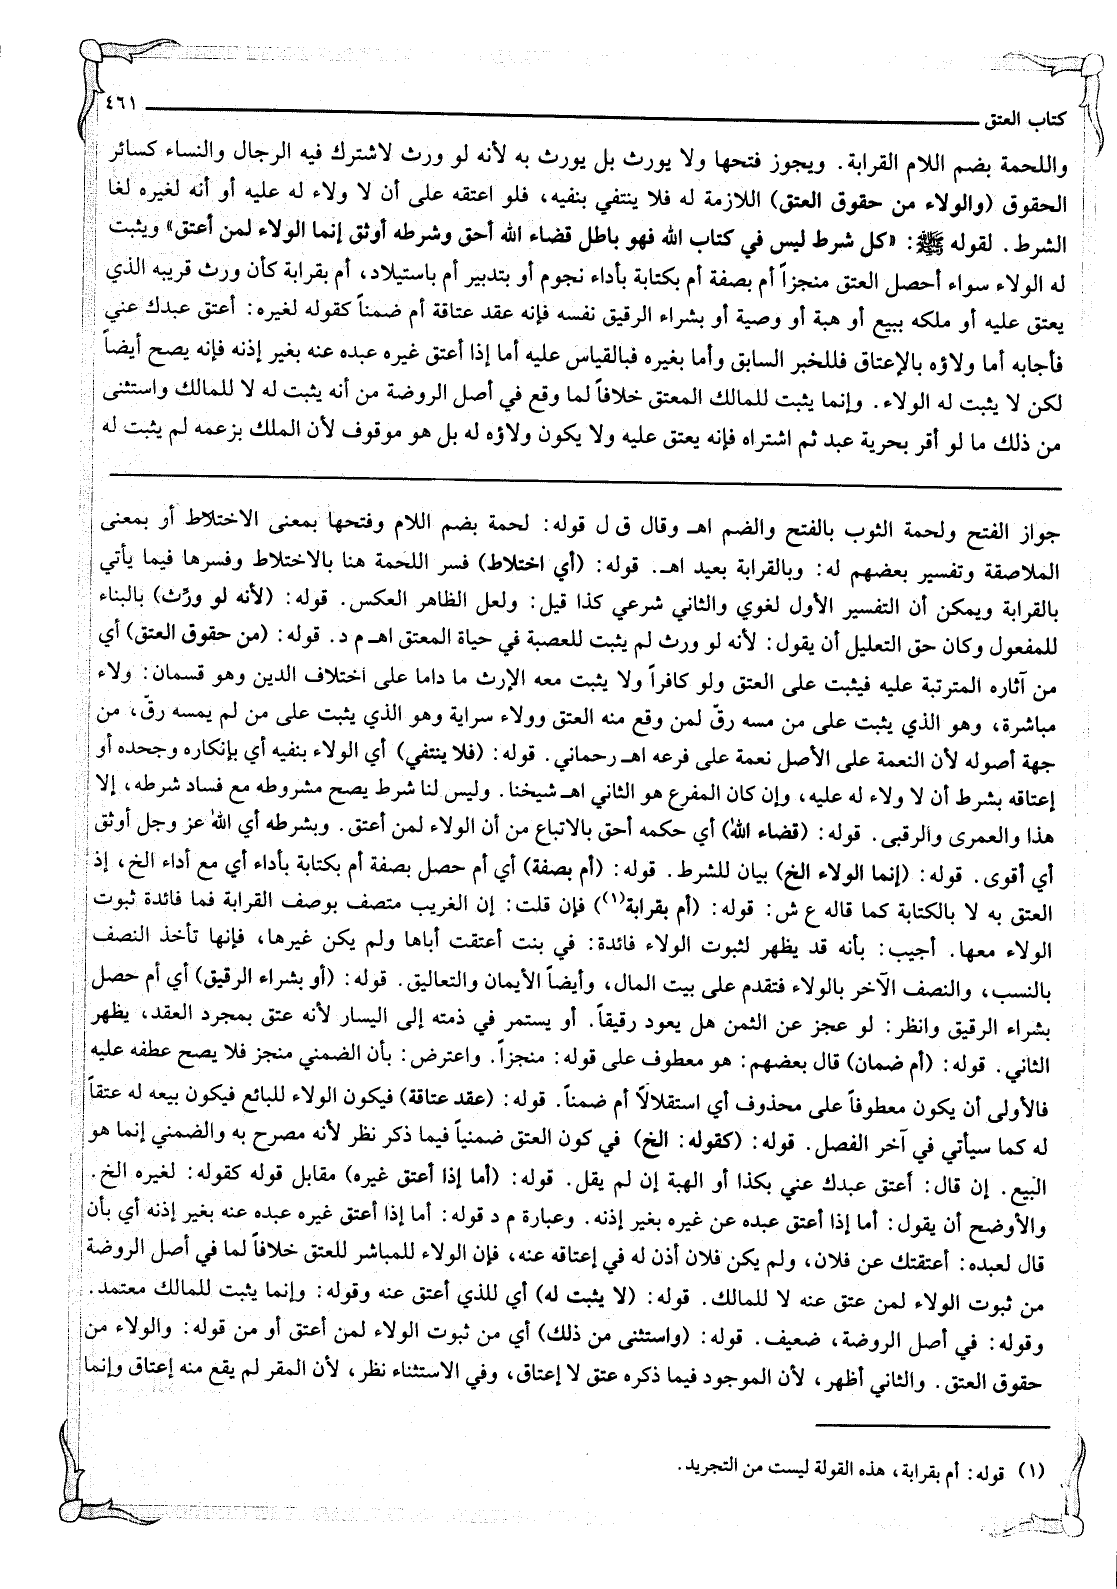 كتاب العتق ٤٦١
واللحمة بضم اللام القرابة. ويجوز فتحها ولا يورث بل يورث به لأنه لو ورث لاشترك فيه الرجال والنساء كسائر
الحقوق (والولاء من حقوق العتق) اللازمة له فلا ينتفي بنفيه، فلو اعتقه على أن لا ولاء له عليه أو أنه لغيره لغا
الشرط. لقوله ﷺ: «كل شرط ليس في كتاب الله فهو باطل قضاء الله أحق وشرطه أوثق إنما الولاء لمن أعتق» ويثبت
له الولاء سواء أحصل العتق منجزاً أم بصفة أم بكتابة بأداء نجوم أو بتدبير أم باستيلاد، أم بقرابة كأن ورث قريبه الذي
يعتق عليه أو ملكه ببيع أو هبة أو وصية أو بشراء الرقيق نفسه فإنه عقد عتاقة أم ضمناً كقوله لغيره: أعتق عبدك عني
فأجابه أما ولاؤه بالإعتاق فللخبر السابق وأما بغيره فبالقياس عليه أما إذا أعتق غيره عبده عنه بغير إذنه فإنه يصح أيضاً
لكن لا يثبت له الولاء. وإنما يثبت للمالك المعتق خلافاً لما وقع في أصل الروضة من أنه يثبت له لا للمالك واستثنى
من ذلك ما لو أقر بحرية عبد ثم اشتراه فإنه يعتق عليه ولا يكون ولاؤه له بل هو موقوف لأن الملك بزعمه لم يثبت له
جواز الفتح ولحمة الثوب بالفتح والضم اهـ وقال ق ل قوله: لحمة بضم اللام وفتحها بمعنى الاختلاط أو بمعنى
الملاصقة وتفسير بعضهم له: وبالقرابة بعيد اهـ. قوله: (أي اختلاط) فسر اللحمة هنا بالاختلاط وفسرها فيما يأتي
بالقرابة ويمكن أن التفسير الأول لغوي والثاني شرعي كذا قيل: ولعل الظاهر العكس. قوله: (لأنه لو ورِّث) بالبناء
للمفعول وكان حق التعليل أن يقول: لأنه لو ورث لم يثبت للعصبة في حياة المعتق اهـ م د. قوله: (من حقوق العتق) أي
من آثاره المترتبة عليه فيثبت على العتق ولو كافراً ولا يثبت معه الإرث ما داما على اختلاف الدين وهو قسمان: ولاء
مباشرة، وهو الذي يثبت على من مسه رقّ لمن وقع منه العتق وولاء سراية وهو الذي يثبت على من لم يمسه رقّ، من
جهة أصوله لأن النعمة على الأصل نعمة على فرعه اهـ رحماني. قوله: (فلا ينتفي) أي الولاء بنفيه أي بإنكاره وجحده أو
إعتاقه بشرط أن لا ولاء له عليه، وإن كان المفرع هو الثاني اهـ شيخنا. وليس لنا شرط يصح مشروطه مع فساد شرطه، إلا
هذا والعمرى والرقبى. قوله: (قضاء الله) أي حكمه أحق بالاتباع من أن الولاء لمن أعتق. وبشرطه أي الله عز وجل أوثق
أي أقوى. قوله: (إنما الولاء الخ) بيان للشرط. قوله: (أم بصفة) أي أم حصل بصفة أم بكتابة بأداء أي مع أداء الخ، إذ
العتق به لا بالكتابة كما قاله ع ش: قوله: (أم بقرابة(١)) فإن قلت: إن الغريب متصف بوصف القرابة فما فائدة ثبوت
الولاء معها. أجيب: بأنه قد يظهر لثبوت الولاء فائدة: في بنت أعتقت أباها ولم يكن غيرها، فإنها تأخذ النصف
بالنسب، والنصف الآخر بالولاء فتقدم على بيت المال، وأيضاً الأيمان والتعاليق. قوله: (أو بشراء الرقيق) أي أم حصل
بشراء الرقيق وانظر: لو عجز عن الثمن هل يعود رقيقاً. أو يستمر في ذمته إلى اليسار لأنه عتق بمجرد العقد، يظهر
الثاني. قوله: (أم ضمان) قال بعضهم: هو معطوف على قوله: منجزاً. واعترض: بأن الضمني منجز فلا يصح عطفه عليه
فالأولى أن يكون معطوفاً على محذوف أي استقلالاً أم ضمناً. قوله: (عقد عتاقة) فيكون الولاء للبائع فيكون بيعه له عتقاً
له كما سيأتي في آخر الفصل. قوله: (كقوله: الخ) في كون العتق ضمنياً فيما ذكر نظر لأنه مصرح به والضمني إنما هو
البيع. إن قال: أعتق عبدك عني بكذا أو الهبة إن لم يقل. قوله: (أما إذا أعتق غيره) مقابل قوله كقوله: لغيره الخ.
والأوضح أن يقول: أما إذا أعتق عبده عن غيره بغير إذنه. وعبارة م د قوله: أما إذا أعتق غيره عبده عنه بغير إذنه أي بأن
قال لعبده: أعتقتك عن فلان، ولم يكن فلان أذن له في إعتاقه عنه، فإن الولاء للمباشر للعتق خلافاً لما في أصل الروضة
من ثبوت الولاء لمن عتق عنه لا للمالك. قوله: (لا يثبت له) أي للذي أعتق عنه وقوله: وإنما يثبت للمالك معتمد.
وقوله: في أصل الروضة، ضعيف. قوله: (واستثنى من ذلك) أي من ثبوت الولاء لمن أعتق أو من قوله: والولاء من
حقوق العتق. والثاني أظهر، لأن الموجود فيما ذكره عتق لا إعتاق، وفي الاستثناء نظر، لأن المقر لم يقع منه إعتاق وإنما
(١) قوله: أم بقرابة، هذه القولة ليست من التجريد.